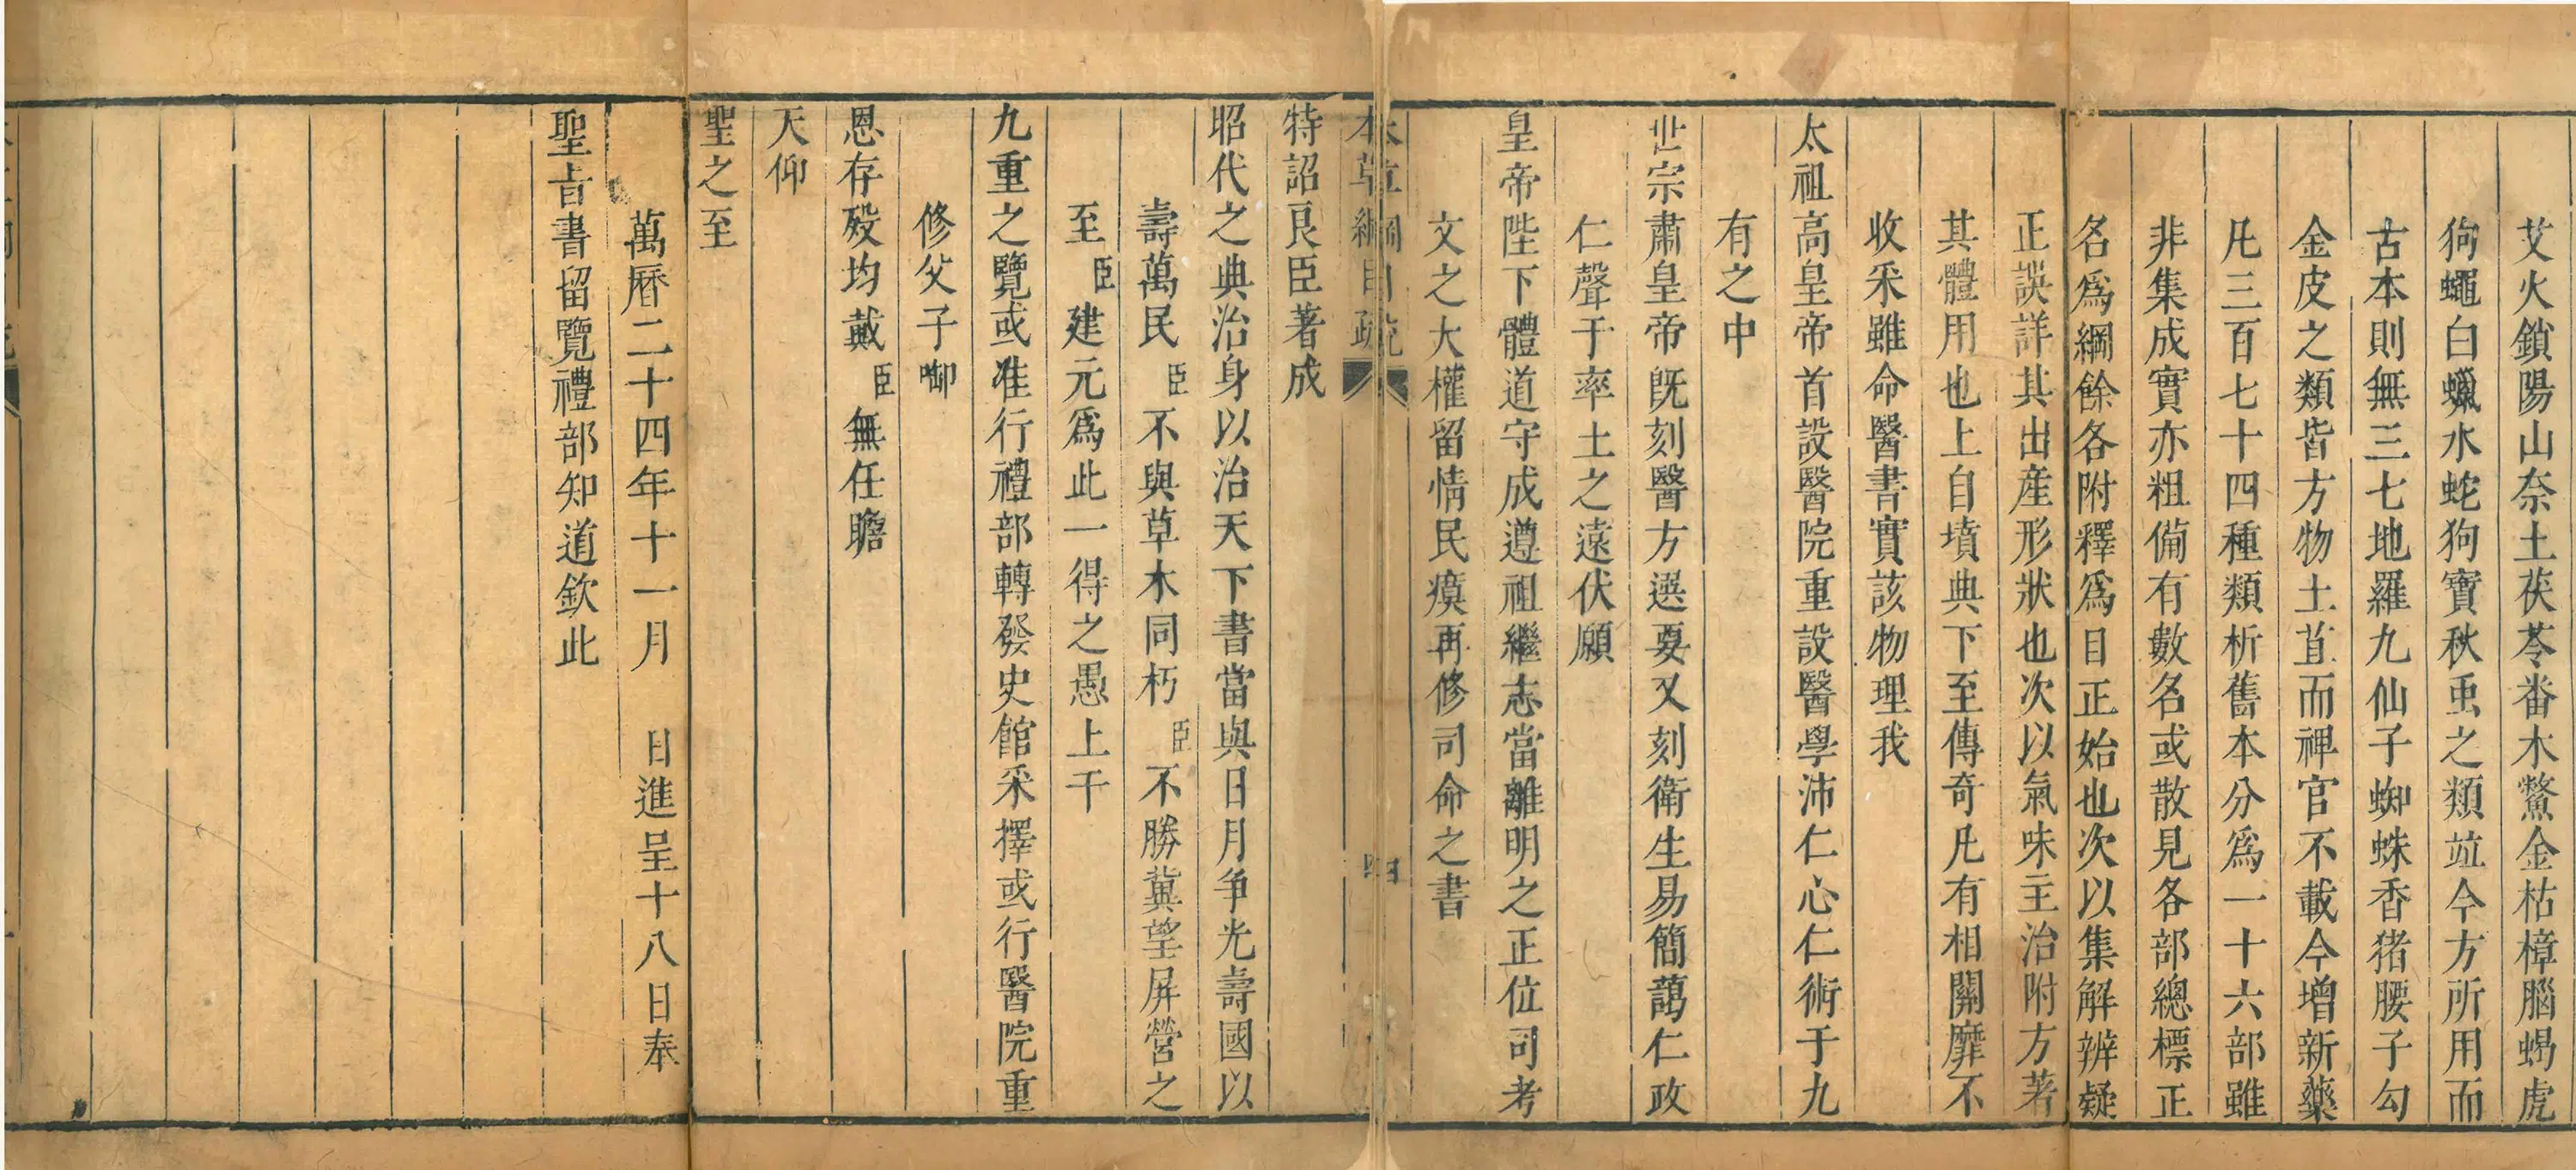 艾火鎖陽山奈土茯苓番木鱉金枯樟腦蝎虎
狗蠅白蠟水蛇狗寶秋䖝之類竝今方所用而
古本則無三七地羅九仙子蜘蛛香猪腰子勾
金皮之類皆方物土苴而稗官不載今增新藥
凡三百七十四種類析舊本分爲一十六部雖
非集成實亦粗備有數名或散見各部總標正
名爲綱餘各附釋爲目正始也次以集解辨疑
正誤詳其出產形狀也次以氣味主治附方著
其體用也上自墳典下至傳奇凡有相關靡不
收采雖命醫書實該物理我
太祖高皇帝首設醫院重設醫學沛仁心仁術于九
有之中
世宗肅皇帝既刻醫方選要又刻衛生易簡藹仁政
仁聲于率土之遠伏願
皇帝陛下體道守成遵祖繼志當離明之正位司考
文之大權留情民瘼再修司命之書
本草綱目疏 四
特詔良臣著成
昭代之典治身以治天下書當與日月争光壽國以
壽萬民臣不與草木同朽臣不勝冀望屏營之
至臣建元爲此一得之愚上干
九重之覽或准行禮部轉發史館采擇或行醫院重
修父子啣
恩存殁均戴臣無任瞻
天仰
聖之至
萬曆二十四年十一月 日進呈十八日奉
聖旨書留覽禮部知道欽此